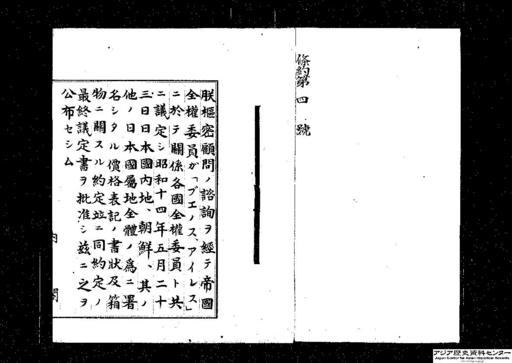 條約第四號
朕樞密顧問ノ諮詢ヲ經テ帝國
全權委員ガ「ブエノス、アイレス」
ニ於テ關係各國全權委員ト共
ニ議定シ昭和十四年五月二十
三日日本國內地、朝鮮、其ノ
他ノ日本國屬地全體ノ爲ニ署
名シタル價格表記ノ書狀及箱
物ニ關スル約定竝ニ同約定ノ
最終議定書ヲ批准シ茲ニ之ヲ
公布セシム
內閣
アジア歴史資料センター
Japan Center for Asian Historical Records